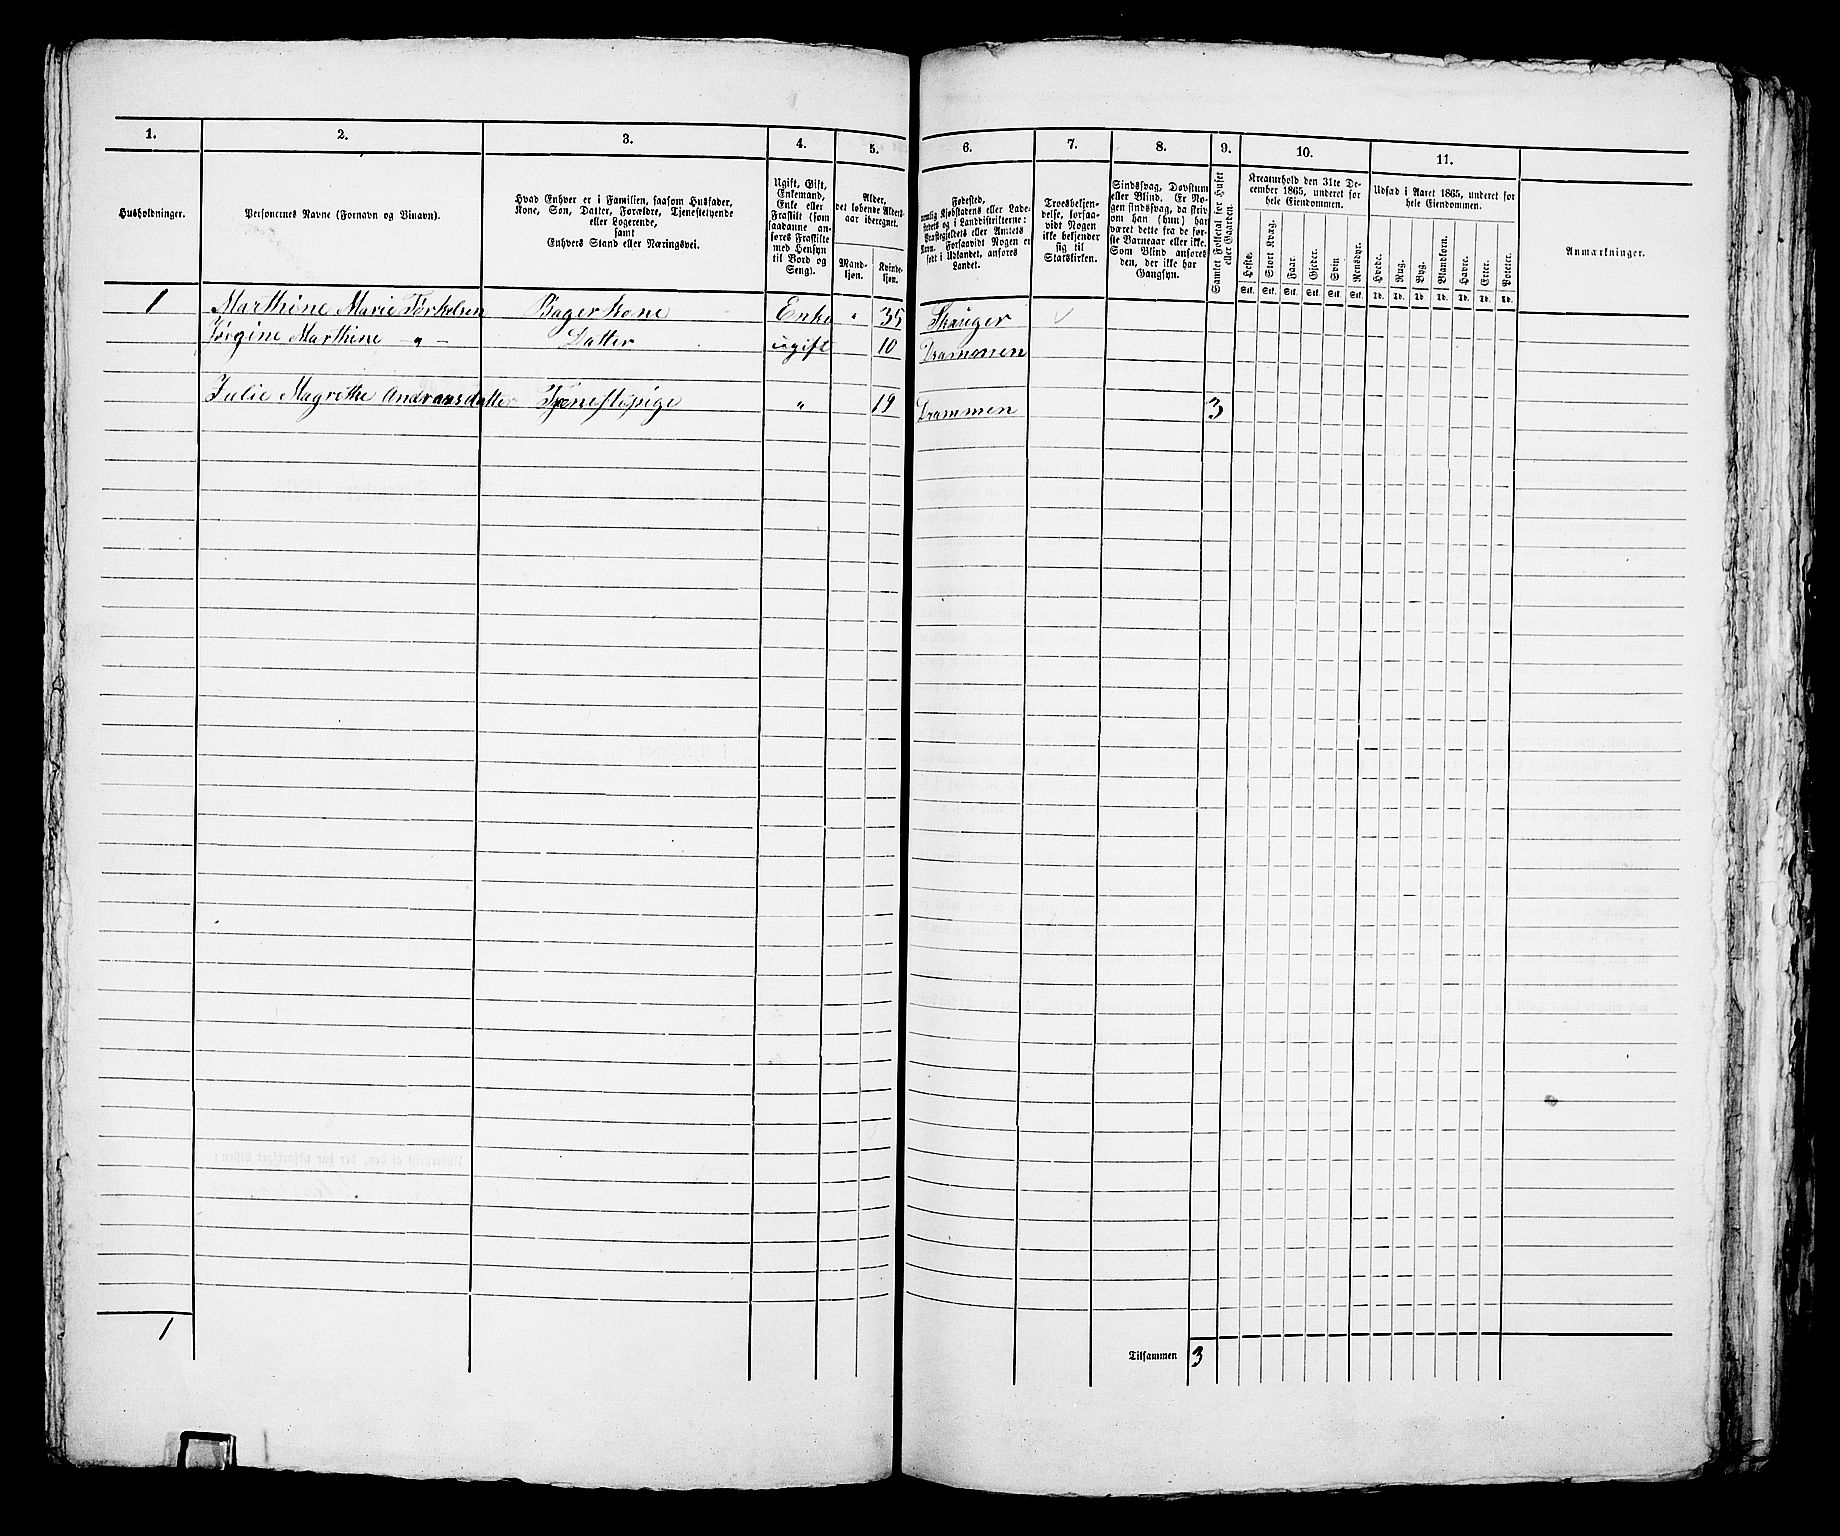 1. 2. 3. 4. 5. 6. 7. 8. 9. 10. 11.
Husholdninger.
Personernes Navne (Fornavn og Binavn).
Hvad Enhver er i Familien, saasom Husfader,
Kone, Søn, Datter, Forældre, Tjenestetyende
eller Logerende,
samt
Enhvers Stand eller Næringsvei.
Ugift, Gift,
Enkemand,
Enke eller
Fraskilt (som
saadanne an-
føres Fraskilte
med Hensyn
til Bord og
Seng).
Alder,
det løbende Alders-
aar iberegnet.
Mand-
kjøn.
Kvinde-
kjøn.
Fødested,
nemlig Kjøbstadens eller Lade-
stedets og i Landdistrikterne:
Præstegjeldets eller Amtets
Navn. Forsaavidt Nogen er
født i Udlandet, anføres
Landet.
Troesbekjen-
delse, forsaa-
vidt Nogen
ikke bekjender
sig til
Statskirken.
Sindssvag, Døvstum
eller Blind. Er No-
gen sindssvag, da skriv
om han (hun) har
været dette fra de før-
ste Barneaar eller ikke.
Som Blind anføres
den, der ikke har
Gangsyn.
Samlet Folketal for Huset
eller Gaarden.
Kreaturhold den 31te De-
cember 1865, underet for
hele Eiendommen.
Heste. Stort Kvæg. Faar. Gjeder. Svin. Rensdyr.
Stk. Stk. Stk. Stk. Stk. Stk.
Udsæd i Aaret 1865, underet for
hele Eiendommen.
Hvede. Rug. Byg. Blandkorn. Havre. Erter. Poteter.
Td. Td. Td. Td. Td. Td. Td.
Anmærkninger.
1 Marthine Marie Torkelsen Bagerkone Enke " 35 Skauger
Marthine -"- Datter ugift 10 Drammen
Julie Magrethe Andreasdatter Tjenestepige " 19 Drammen 3
1
Tilsammen 3